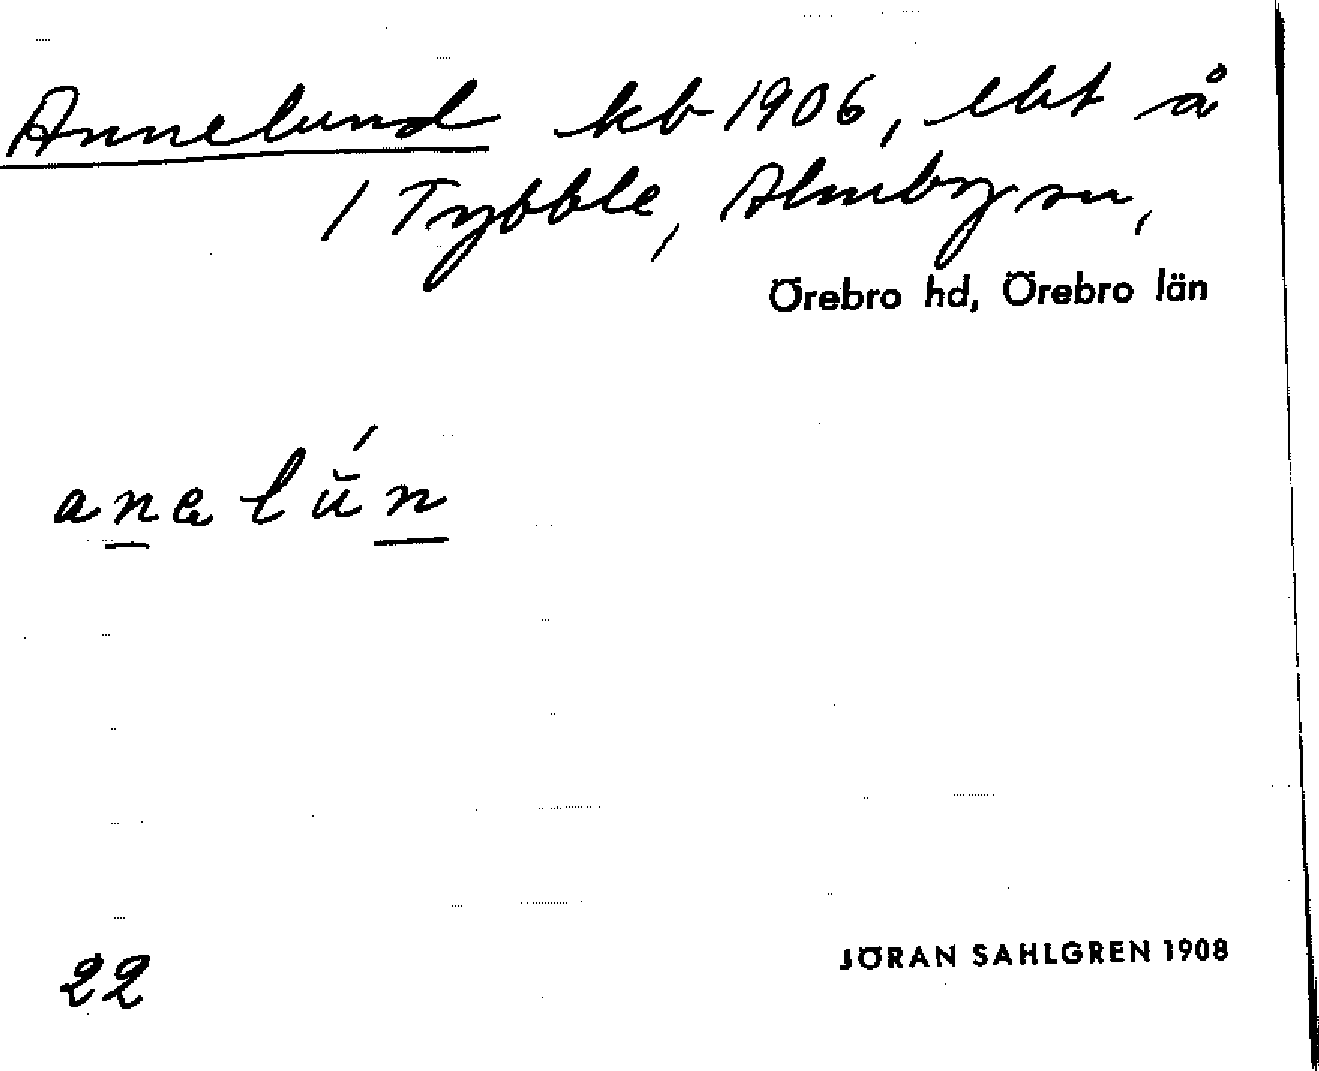 Annelund kb 1906, lht å
1 Tybble, Almby sn,
Örebro hd, Örebro län
anelún
22
JÖRAN SAHLGREN 1908